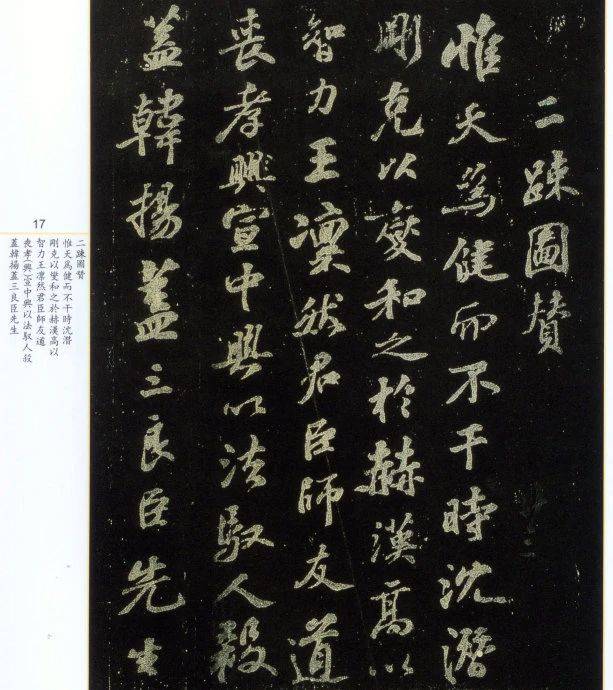 二踈圖贊
惟天爲健而不干時沈潛
剛克以燮和之於赫漢高以
智力王凜然君臣師友道
喪孝興宣中興以法馭人殺
蓋韓揚蓋三良臣先生
17
二踈圖贊
惟天爲健而不干時沈潛
剛克以燮和之於赫漢高以
智力王凜然君臣師友道
喪孝(興)宣中興以法馭人殺
蓋韓揚蓋三良臣先生